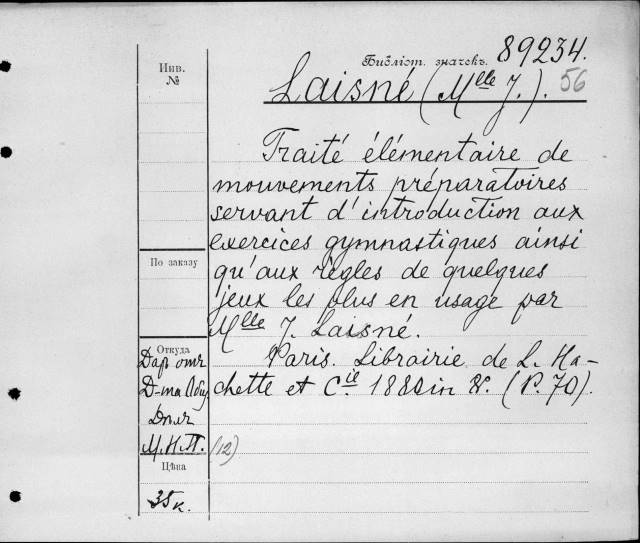 Библіот. значекъ. 89234.
Laisné (Mlle J.). 56
Traité élémentaire de
mouvements préparatoires
servant d'introduction aux
exercices gymnastiques ainsi
qu'aux règles de quelques
jeux les plus en usage par
Mlle J. Laisné.
Paris. Librairie de L. Ha-
chette et Cie. 1880 in 8. (P. 70).
Инв.
№
По заказу
Откуда
Даръ отъ
Д-та
М.Н.П. (12)
Цѣна
35 к.